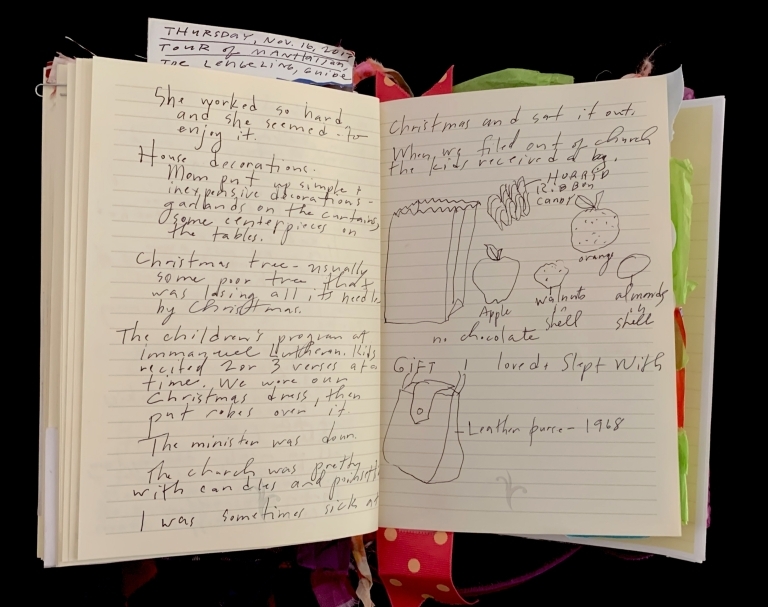 THURSDAY, NOV. 16, 2017
TOUR OF MANHATTAN,
JOE LENGELING, GUIDE
She worked so hard
and she seemed to
enjoy it.
House decorations.
Mom put up simple +
inexpensive decorations -
garlands on the curtains,
some centerpieces on
the tables.
Christmas tree - usually
some poor tree that
was losing all its needles
by Christmas.
The children's program at
Immanuel Lutheran. Kids
recited 2 or 3 verses at a
time. We wore our
Christmas dress, then
put robes over it.
The minister was
The church was pretty
with candles and
I was sometimes sick at
Christmas and sat it out.
When we filed out of church
the kids received a bag.
HORRID
RIBBON
CANDY
orange
Apple
walnuts
in
shell
almonds
in
shell
no chocolate
GIFT I loved + slept with
Leather purse - 1968